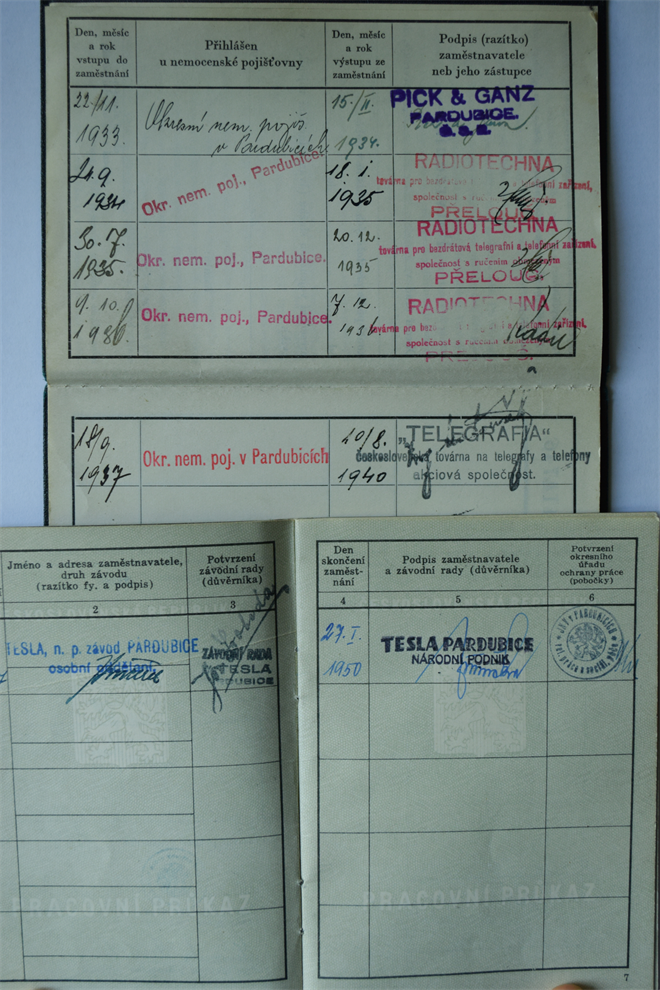 Den, měsíc
a rok
vstupu do
zaměstnání
Přihlášen
u nemocenské pojišťovny
Den, měsíc
a rok
výstupu ze
zaměstnání
Podpis (razítko)
zaměstnavatele
neb jeho zástupce
22./11.
1933
Okresní nem. pojiš.
v Pardubicích
15./II.
1934.
PICK & GANZ
PARDUBICE.
24. 9.
1934
Okr. nem. poj., Pardubice.
18. 1.
1935
RADIOTECHNA
továrna pro bezdrátová telegrafní a telefonní zařízení,
společnost s ručením
PŘELOUČ.
30. 7.
1935.
Okr. nem. poj., Pardubice.
20. 12.
1935
RADIOTECHNA
továrna pro bezdrátová telegrafní a telefonní zařízení,
společnost s ručením obmezeným
PŘELOUČ.
Okr. nem. poj., Pardubice.
7. 12.
RADIOTECHNA
společnost s ručením
PŘELOUČ.
18/9.
1937
Okr. nem. poj. v Pardubicích
20/8.
1940
„TELEGRAFIA“
československá továrna na telegrafy a telefony
akciová společnost.
Jméno a adresa zaměstnavatele,
druh závodu
(razítko fy. a podpis)
Potvrzení
závodní rady
(důvěrníka)
2
3
TESLA, n. p. závod PARDUBICE
osobní oddělení
ZÁVODNÍ RADA
TESLA
PARDUBICE
PRACOVNÍ PRŮKAZ
Den
skončení
zaměst-
nání
Podpis zaměstnavatele
a závodní rady (důvěrníka)
Potvrzení
okresního
úřadu
ochrany práce
(pobočky)
4
5
6
27. I.
1950
TESLA PARDUBICE
NÁRODNÍ PODNIK
PRACOVNÍ PRŮKAZ
7